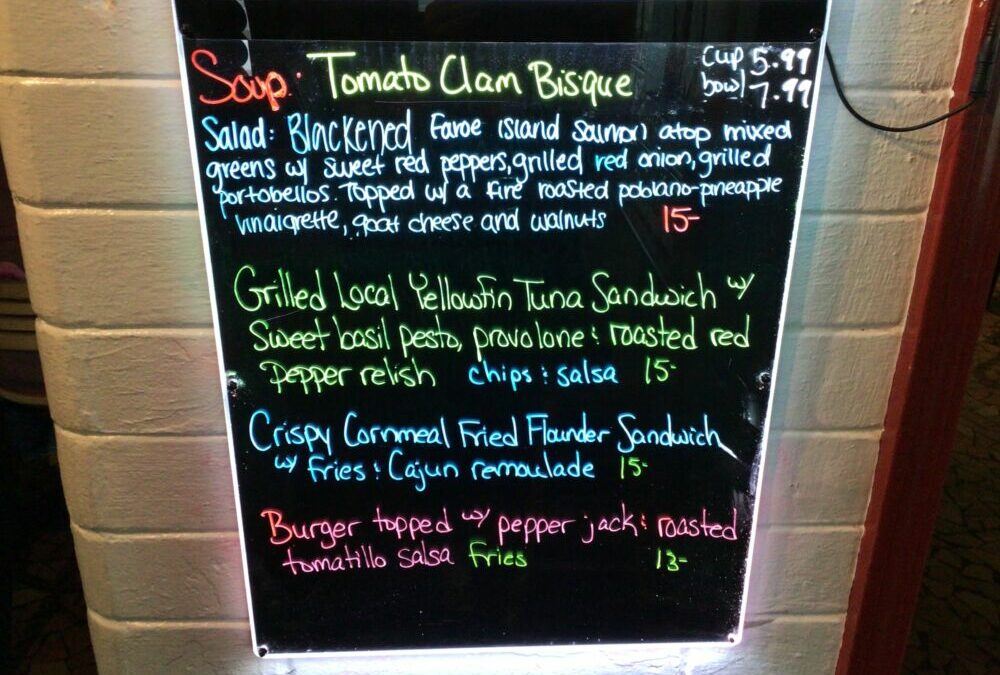 Soup: Tomato Clam Bisque cup 5.99
bowl 7.99
Salad: Blackened Faroe Island Salmon atop mixed
greens w/ sweet red peppers, grilled red onion, grilled
portobellos. Topped w/ a fire roasted poblano-pineapple
vinaigrette, goat cheese and walnuts 15-
Grilled Local Yellowfin Tuna Sandwich w/
Sweet basil pesto, provolone & roasted red
pepper relish chips & salsa 15-
Crispy Cornmeal Fried Flounder Sandwich
w/ fries & Cajun remoulade 15-
Burger topped w/ pepper jack & roasted
tomatillo salsa fries 13-